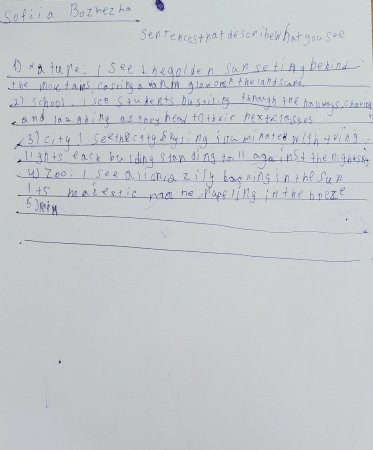 Sofiia Bozhezha
Sentences that describe what you see
1) Nature: I see the golden sun setting behind
the mountains casting a warm glow over the landscape
2) School. I see students bustling through the hallways, chatting
and laughing as they head to their next classes
3) city I see the city skyline illuminated with
lights each building standing tall against the night sky
4) Zoo: I see a lion lazily basking in the sun
its majestic mane in the breeze
5)